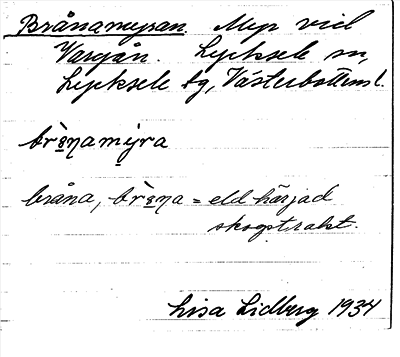 Brånamyran. Myr vid
Vargån. Lycksele sn,
Lycksele tg, Västerbottens l.
brånamyra
bråna, = eldhärjad
skogstrakt.
Lisa Lidberg 1934